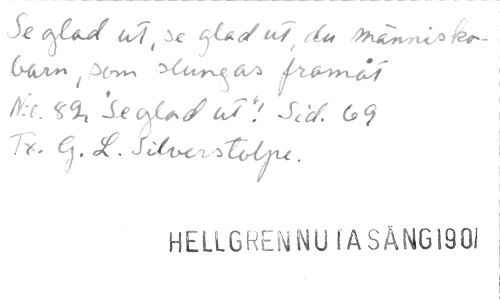 Se glad ut, se glad ut, du människo-
barn, som slungas framåt
N:o. 82, "Se glad ut"! Sid. 69
Tx. G. L. Silverstolpe.
HELLGRENNUTASÅNG1901